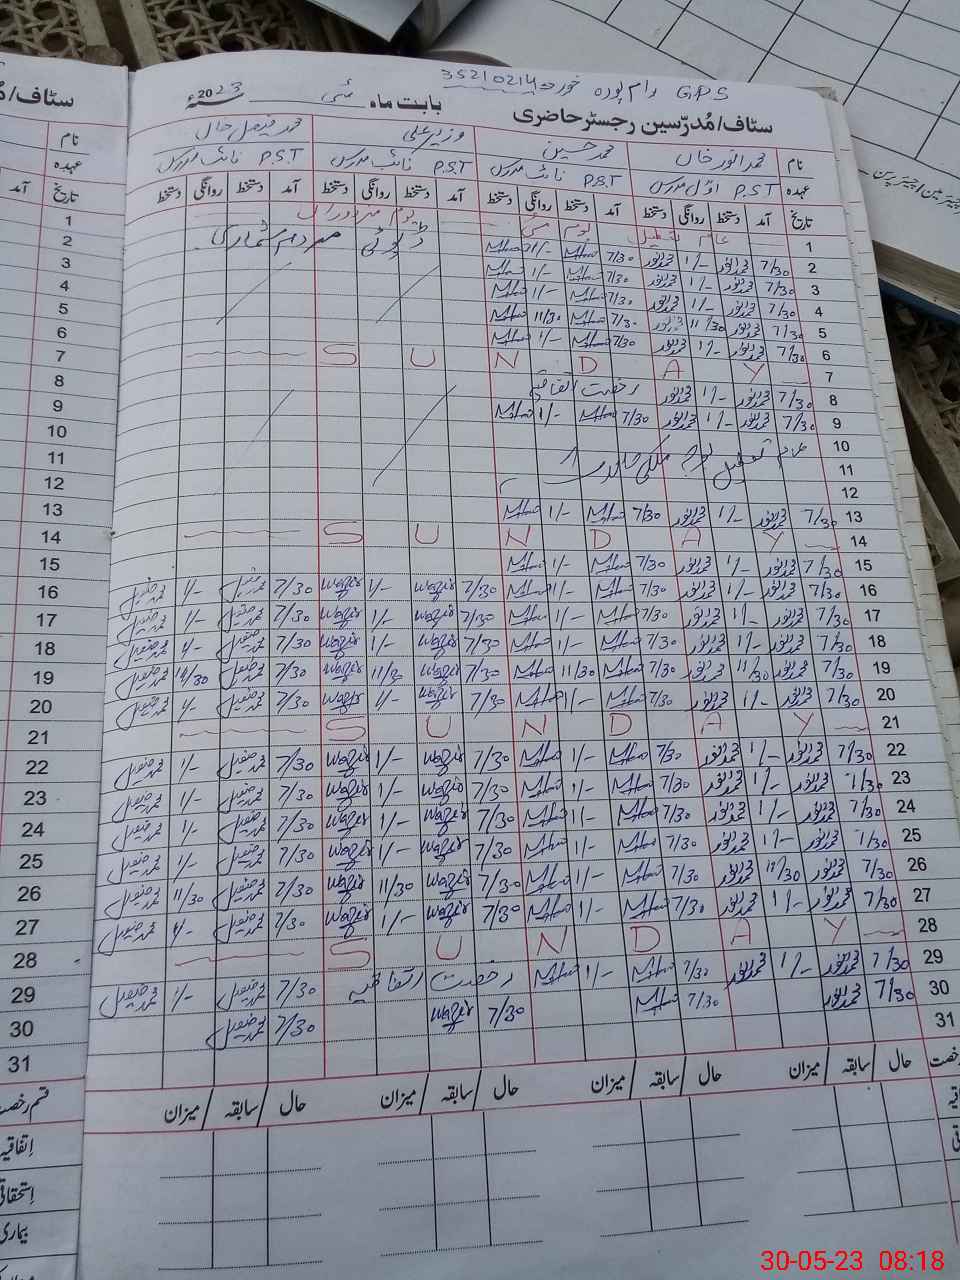 GPS رام پورہ خورد 35210214
سٹاف/مُدرّسین رجسٹر حاضری بابت ماہ مئی سنہ 2023ء
نام محمد انور خاں محمد حسین وزیر علی محمد فیصل حال
عہدہ P.S.T اوّل مدرس P.S.T نائب مدرس P.S.T نائب مدرس P.S.T نائب مدرس
تاریخ آمد دستخط روانگی دستخط آمد دستخط روانگی دستخط آمد دستخط روانگی دستخط آمد دستخط روانگی دستخط
1 عام تعطیل یوم مئی یوم مزدوراں
2 7/30 محمد انور 1/- محمد انور 7/30 1/- ڈیوٹی مردم شماری
3 7/30 محمد انور 1/- محمد انور 7/30 1/-
4 7/30 محمد انور 1/- محمد انور 7/30 1/-
5 7/30 محمد انور 11/30 محمد انور 7/30 11/30
6 7/30 محمد انور 1/- محمد انور 7/30 1/-
7 S U N D A Y
8 7/30 محمد انور 1/- محمد انور رخصت اتفاقیہ
9 7/30 محمد انور 1/- محمد انور 7/30 1/-
10 عام تعطیل بوجہ ملکی حالات
11
12
13 7/30 محمد انور 1/- محمد انور 7/30 1/-
14 S U N D A Y
15 7/30 محمد انور 1/- محمد انور 7/30 1/-
16 7/30 محمد انور 1/- محمد انور 7/30 1/- 7/30 Wazir 1/- Wazir 7/30 محمد فیصل 1/- محمد فیصل
17 7/30 محمد انور 1/- محمد انور 7/30 1/- 7/30 Wazir 1/- Wazir 7/30 محمد فیصل 1/- محمد فیصل
18 7/30 محمد انور 1/- محمد انور 7/30 1/- 7/30 Wazir 1/- Wazir 7/30 محمد فیصل 1/- محمد فیصل
19 7/30 محمد انور 11/30 محمد انور 7/30 11/30 7/30 Wazir 11/30 Wazir 7/30 محمد فیصل 11/30 محمد فیصل
20 7/30 محمد انور 1/- محمد انور 7/30 1/- 7/30 Wazir 1/- Wazir 7/30 محمد فیصل 1/- محمد فیصل
21 S U N D A Y
22 7/30 محمد انور 1/- محمد انور 7/30 1/- 7/30 Wazir 1/- Wazir 7/30 محمد فیصل 1/- محمد فیصل
23 7/30 محمد انور 1/- محمد انور 7/30 1/- 7/30 Wazir 1/- Wazir 7/30 محمد فیصل 1/- محمد فیصل
24 7/30 محمد انور 1/- محمد انور 7/30 1/- 7/30 Wazir 1/- Wazir 7/30 محمد فیصل 1/- محمد فیصل
25 7/30 محمد انور 1/- محمد انور 7/30 1/- 7/30 Wazir 1/- Wazir 7/30 محمد فیصل 1/- محمد فیصل
26 7/30 محمد انور 11/30 محمد انور 7/30 1/- 7/30 Wazir 11/30 Wazir 7/30 محمد فیصل 11/30 محمد فیصل
27 7/30 محمد انور 1/- محمد انور 7/30 1/- 7/30 Wazir 1/- Wazir 7/30 محمد فیصل 1/- محمد فیصل
28 S U N D A Y
29 7/30 محمد انور 1/- محمد انور 7/30 1/- رخصت اتفاقیہ 7/30 محمد فیصل 1/- محمد فیصل
30 7/30 محمد انور 7/30 7/30 Wazir 7/30 محمد فیصل
31
حال / سابقہ / میزان حال / سابقہ / میزان حال / سابقہ / میزان حال / سابقہ / میزان
سٹاف/مُ
نام
عہدہ
تاریخ آمد
1
2
3
4
5
6
7
8
9
10
11
12
13
14
15
16
17
18
19
20
21
22
23
24
25
26
27
28
29
30
31
قسم رخصت
اِتفاقیہ
اِستحقاقی
بیماری
30-05-23 08:18